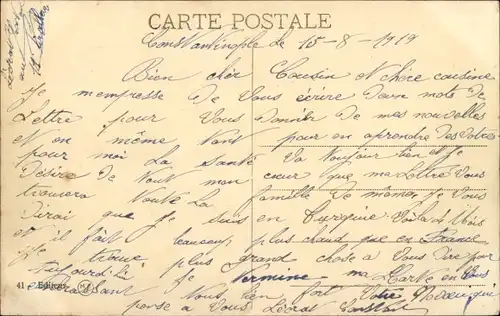 CARTE POSTALE
Constantinople le 15-8-1919
Bien chèr Cousin et chère cousine
Je mempresse De Vous écrire Deux mots De
Lettre pour Vous Donnér De mes nouvelles
et en même tant pour en aprendre Des Votres
pour moi La santé Va Toujour bien et Je
Désire De Tout mon cœur que ma Lettre Vous
trouvera Toute La famille De même Je Vous
Dirai que Je suis en Turquie Voila Mois
et il fait beaucoup plus chaud que en France
Je trouve plus grand chose a Vous Dire pour
aujourd'hui Je termine ma Carte en Vous
Nous bien fort Votre
pense a Vous Léorat
41 - Edition